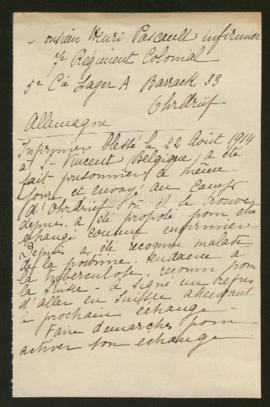 Monsieur Henri Pascault infirmier
7e Régiment Colonial
5e Cie Lager A Barrack 33
Ohrdruf
Allemagne
Infirmier blessé le 22 Août 1914
à St Vincent Belgique, a été
fait prisonnier le même
jour et envoyé au camp
d'Ohrdruf où il se trouve
depuis. a été proposé pour être
échangé comme infirmier.
Depuis a été reconnu malade
de la poitrine. tendance à
la tuberculose, reconnu pour
la Suisse - a signé un refus
d'aller en Suisse attendant
le prochain échange -
Faire démarches pour
activer son échange